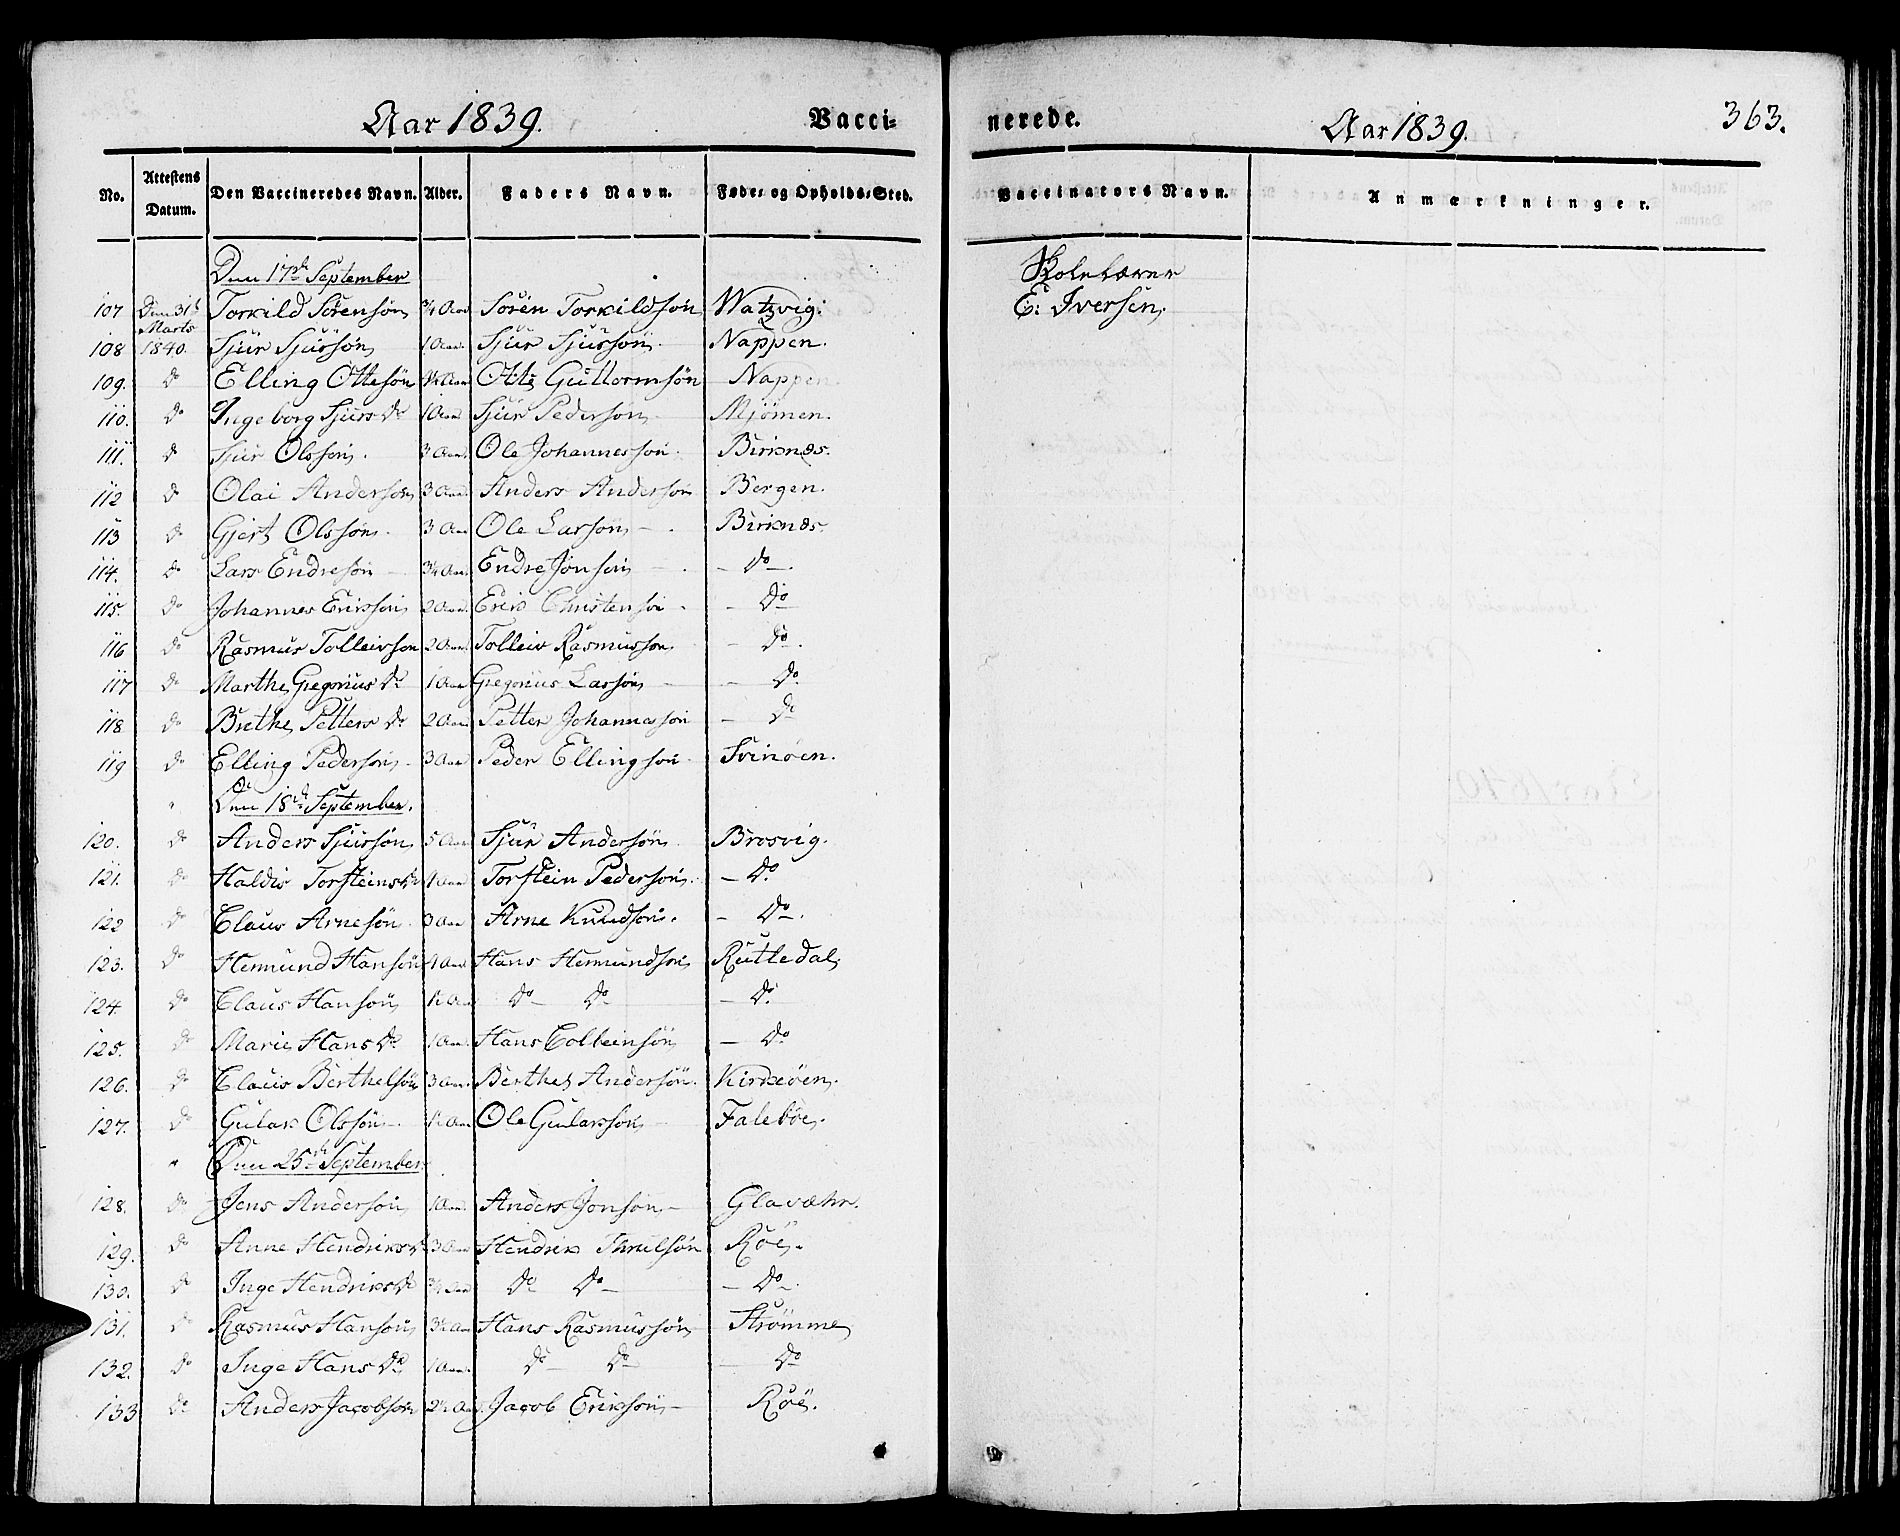 Aar 1839. Vacci-
No. Attestens Datum. Den Vaccineredes Navn. Alder. Faders Navn. Føde- og Opholds-Sted.
Den 17de September
107 Den 31te Torkild Sörensön 3/4 Aar Sören Torkildsön Watzvig.
Marts
108 1840. Sjur Sjursön 1 Aar Sjur Sjursön. Nappen.
109. do Elling Ottesön Aar Otte Guttormsön Nappen
110. do Ingeborg Sjurs Dr 1 Aar Sjur Pedersön Mjömen.
111. do Sjur Olssön. 3 Aar. Ole Johannessön. Birknæs.
112 do Olai Andersön 3 Aar. Anders Andersön Bergen.
113 do Gjert Olssön. 3 Aar Ole Larsön - . Birknæs
114. do Lars Endresön - 3/4 Aar. Endre Jonsön - . - do - .
115. do Johannes Eriksön 2 Aar. Erik Christensön - - do -
116 do Rasmus Tolleivson 2 Aar. Tolleiv Rasmusson. - do - .
117 do Marthe Gregorius Dr 1 Aar Gregorius Larsön - - do
118 do Brithe Petters Dr 2 Aar. Petter Johannesson - do
119 do Elling Pedersön. 3 Aar. Peder Ellingsön. Svinöen.
" Den 18de September.
120. do Anders Sjursön 5 Aar Sjur Andersön. Brosvig.
121. do Haldis Torsteins Dr 1 Aar Torstein Pedersön. - do
122 do Claus Arnesön. 3 Aar Arne Knudsön. - do - .
123. do Hermund Hansön Aar Hans Hermundsön Rutledal,
124. do Claus Hansön 1/2 Aar do - do - - do
125. do Marie Hans Dr 1 Aar. Hans Colleinsön - do
126. do Claus Berthelsön 3 Aar. Berthel Andersön. Kirkeöen.
127. do Gulak Olssön - . 1/2 Aar Ole Gulaksön - Faleböe.
" Den 25de September
128. do Jens Andersön 1 Aar. Anders Jonsön - Glavæhr.
129. do Anne Hendriks Dr 3 Aar Hendrik Röe.
130. do Inge Hendriks Dr 3/4 Aar do do - - do -
131. do Rasmus Hansön 3 1/2 Aar Hans Rasmussön Strömme
132. do Inge Hans Dr 1 Aar. do - do - do
133 do Anders Jacobsön 2 1/2 Aar Jacob Eriksön - Röe.
nerede. Aar 1839. 363.
Vaccinators Navn. Anmærkninger.
Skolelærer
E. Iversen,